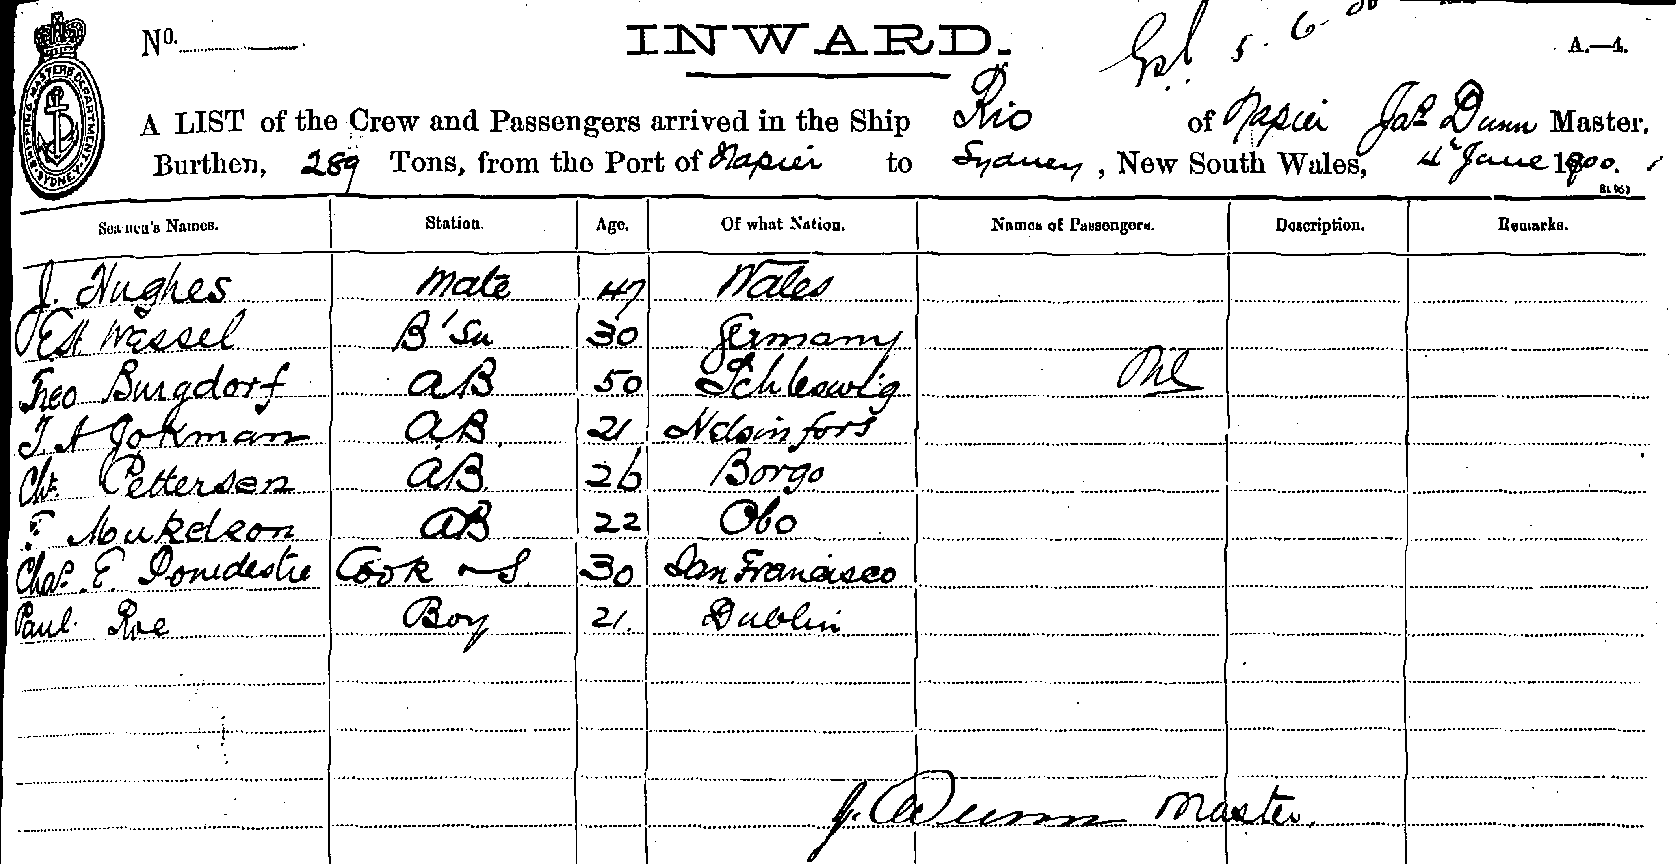 No. INWARD. 5. 6. 00 A.—4.
SHIPPING MASTERS DEPARTMENT SYDNEY
A LIST of the Crew and Passengers arrived in the Ship Rio of Napier Jas Dunn Master,
Burthen, 289 Tons, from the Port of Napier to Sydney, New South Wales, 4th June 1900.
Seamen's Names. Station. Age. Of what Nation. Names of Passengers. Description. Remarks.
J. Hughes Mate 47 Wales
Wessel B'Sn 30 Germany
Theo Burgdorf AB 50 Schleswig Nil
J A Jokman AB. 21 Helsinfors
Petterson AB. 26 Borgo
AB 22 Obo
Chas. E Cook S 30 San Francisco
Paul Roe Boy 21. Dublin
J. Dunn Master.